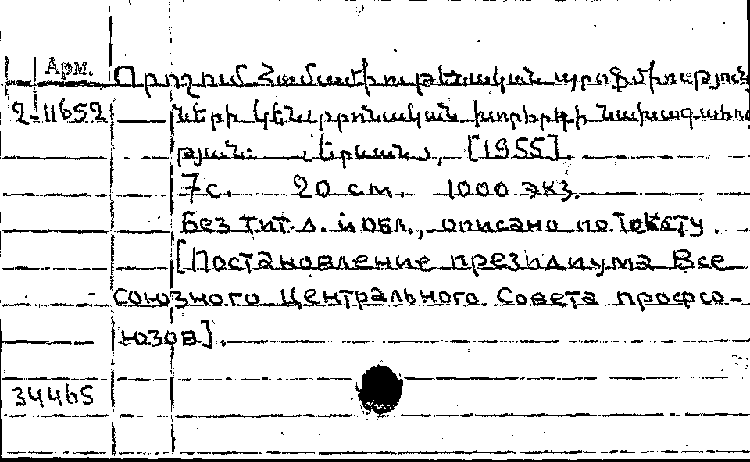 Арм. Որոշում Համամիութենական պրոֆմիություն
2-11652 ների կենտրոնական խորհրդի նախագահու
թյան: Երևան, [1955].
7 с. 20 см. 1000 экз.
Без тит. л. и обл., описано по тексту.
[Постановление президиума Все
союзного Центрального Совета профсо-
юзов].
34465